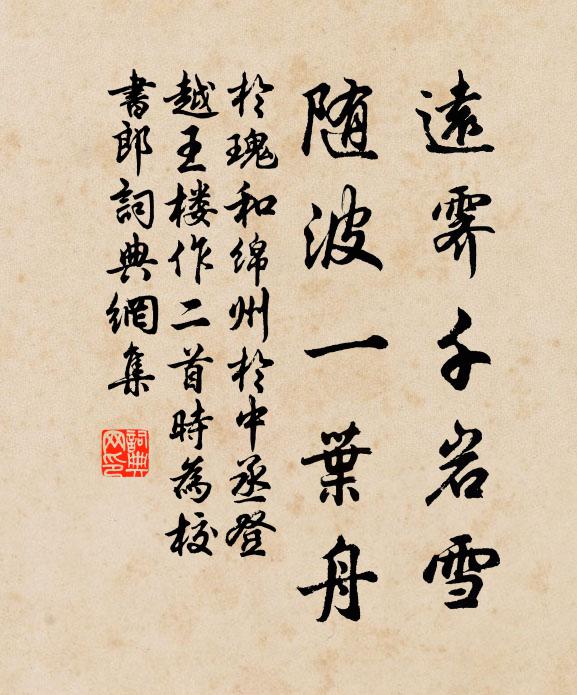 遠霽千岩雪
随波一葉舟
於瑰和绵州於中丞登
越王楼作二首時為校
書郎詞典網集
詞典网印